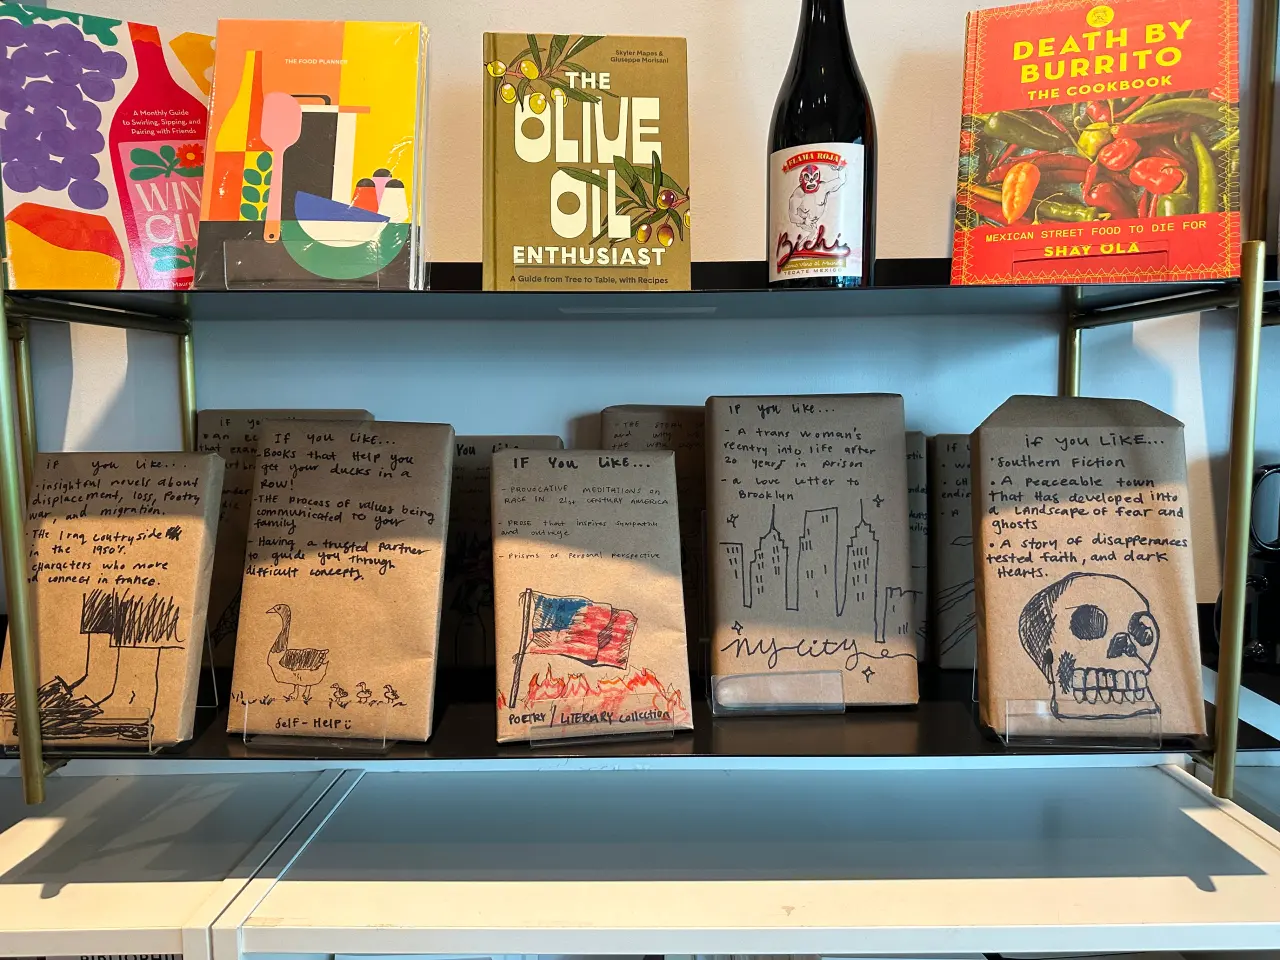 A Monthly Guide
to Swirling, Sipping, and
Pairing with Friends
WIN
CLU
THE FOOD PLANNER
Skyler Mapes &
Giuseppe Morisani
THE
OLIVE
OIL
ENTHUSIAST
A Guide from Tree to Table, with Recipes
FLAMA ROJA
Bichi
TECATE MEXICO
DEATH BY
BURRITO
THE COOKBOOK
MEXICAN STREET FOOD TO DIE FOR
SHAY OLA
if you like...
- insightful novels about
displacement, loss, poetry
war, and migration.
- The Iraq countryside
in the 1950's.
characters who move
connect in france.
IF yo
If you like...
- Books that help you
get your ducks in a
row!
- The process of values being
communicated to your
family
- Having a trusted partner
to guide you through
difficult concepts.
Self-Help
You Like
IF You Like...
- PROVOCATIVE MEDITATIONS on
RACE IN 21st CENTURY AMERICA
- Prose that inspires sympathy
and outrage
- Prisms of Personal Perspective
POETRY / LITERARY collection
- THE
and
IF you like...
- A trans woman's
reentry into life after
20 years in prison
- a Love letter to
Brooklyn
NY city
IF
if you LIKE...
• Southern Fiction
• A Peaceable town
that Has developed into
a Landscape of fear and
ghosts
• A story of disapperances
tested faith, and dark
Hearts.